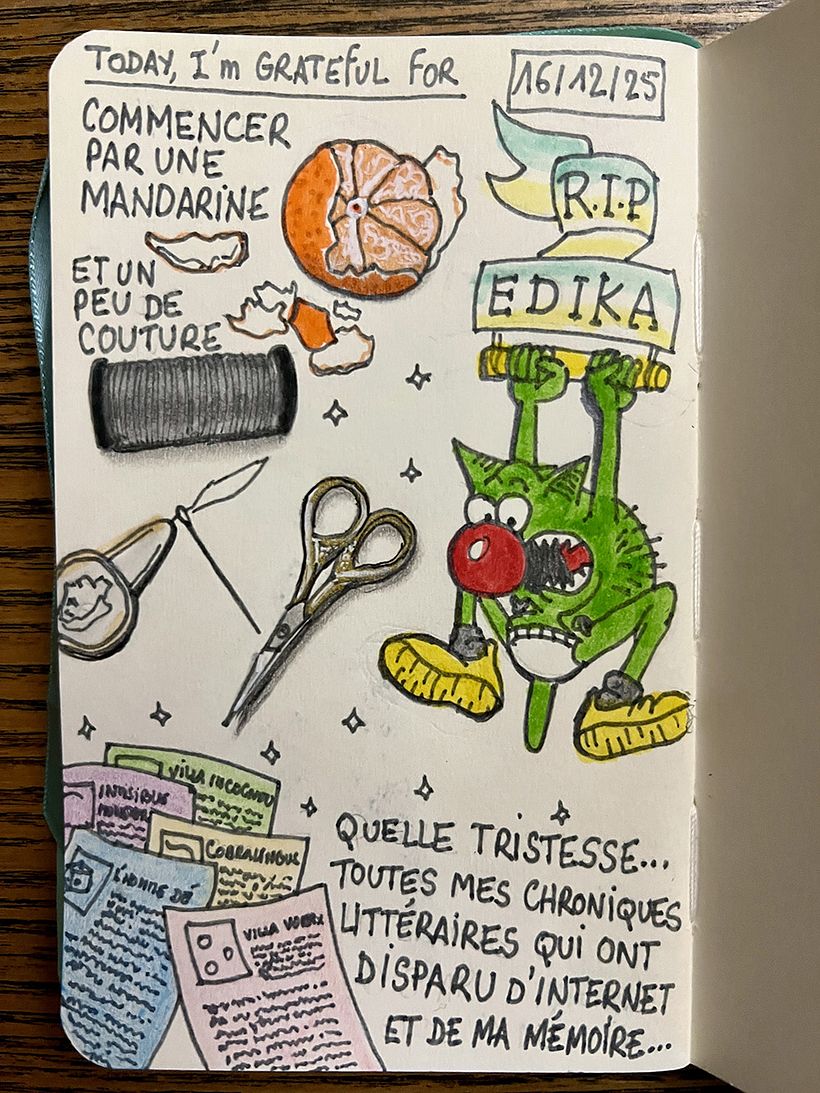 TODAY, I'm GRATEFUL FOR
16/12/25
COMMENCER
PAR UNE
MANDARINE
ET UN
PEU DE
COUTURE
R.I.P
EDIKA
VILLA INCOGNITO
INVISIBLES
COBRALINGUS
L'HOMME DÉ
VILLA VORTEX
QUELLE TRISTESSE...
TOUTES MES CHRONIQUES
LITTÉRAIRES QUI ONT
DISPARU D'INTERNET
ET DE MA MÉMOIRE...